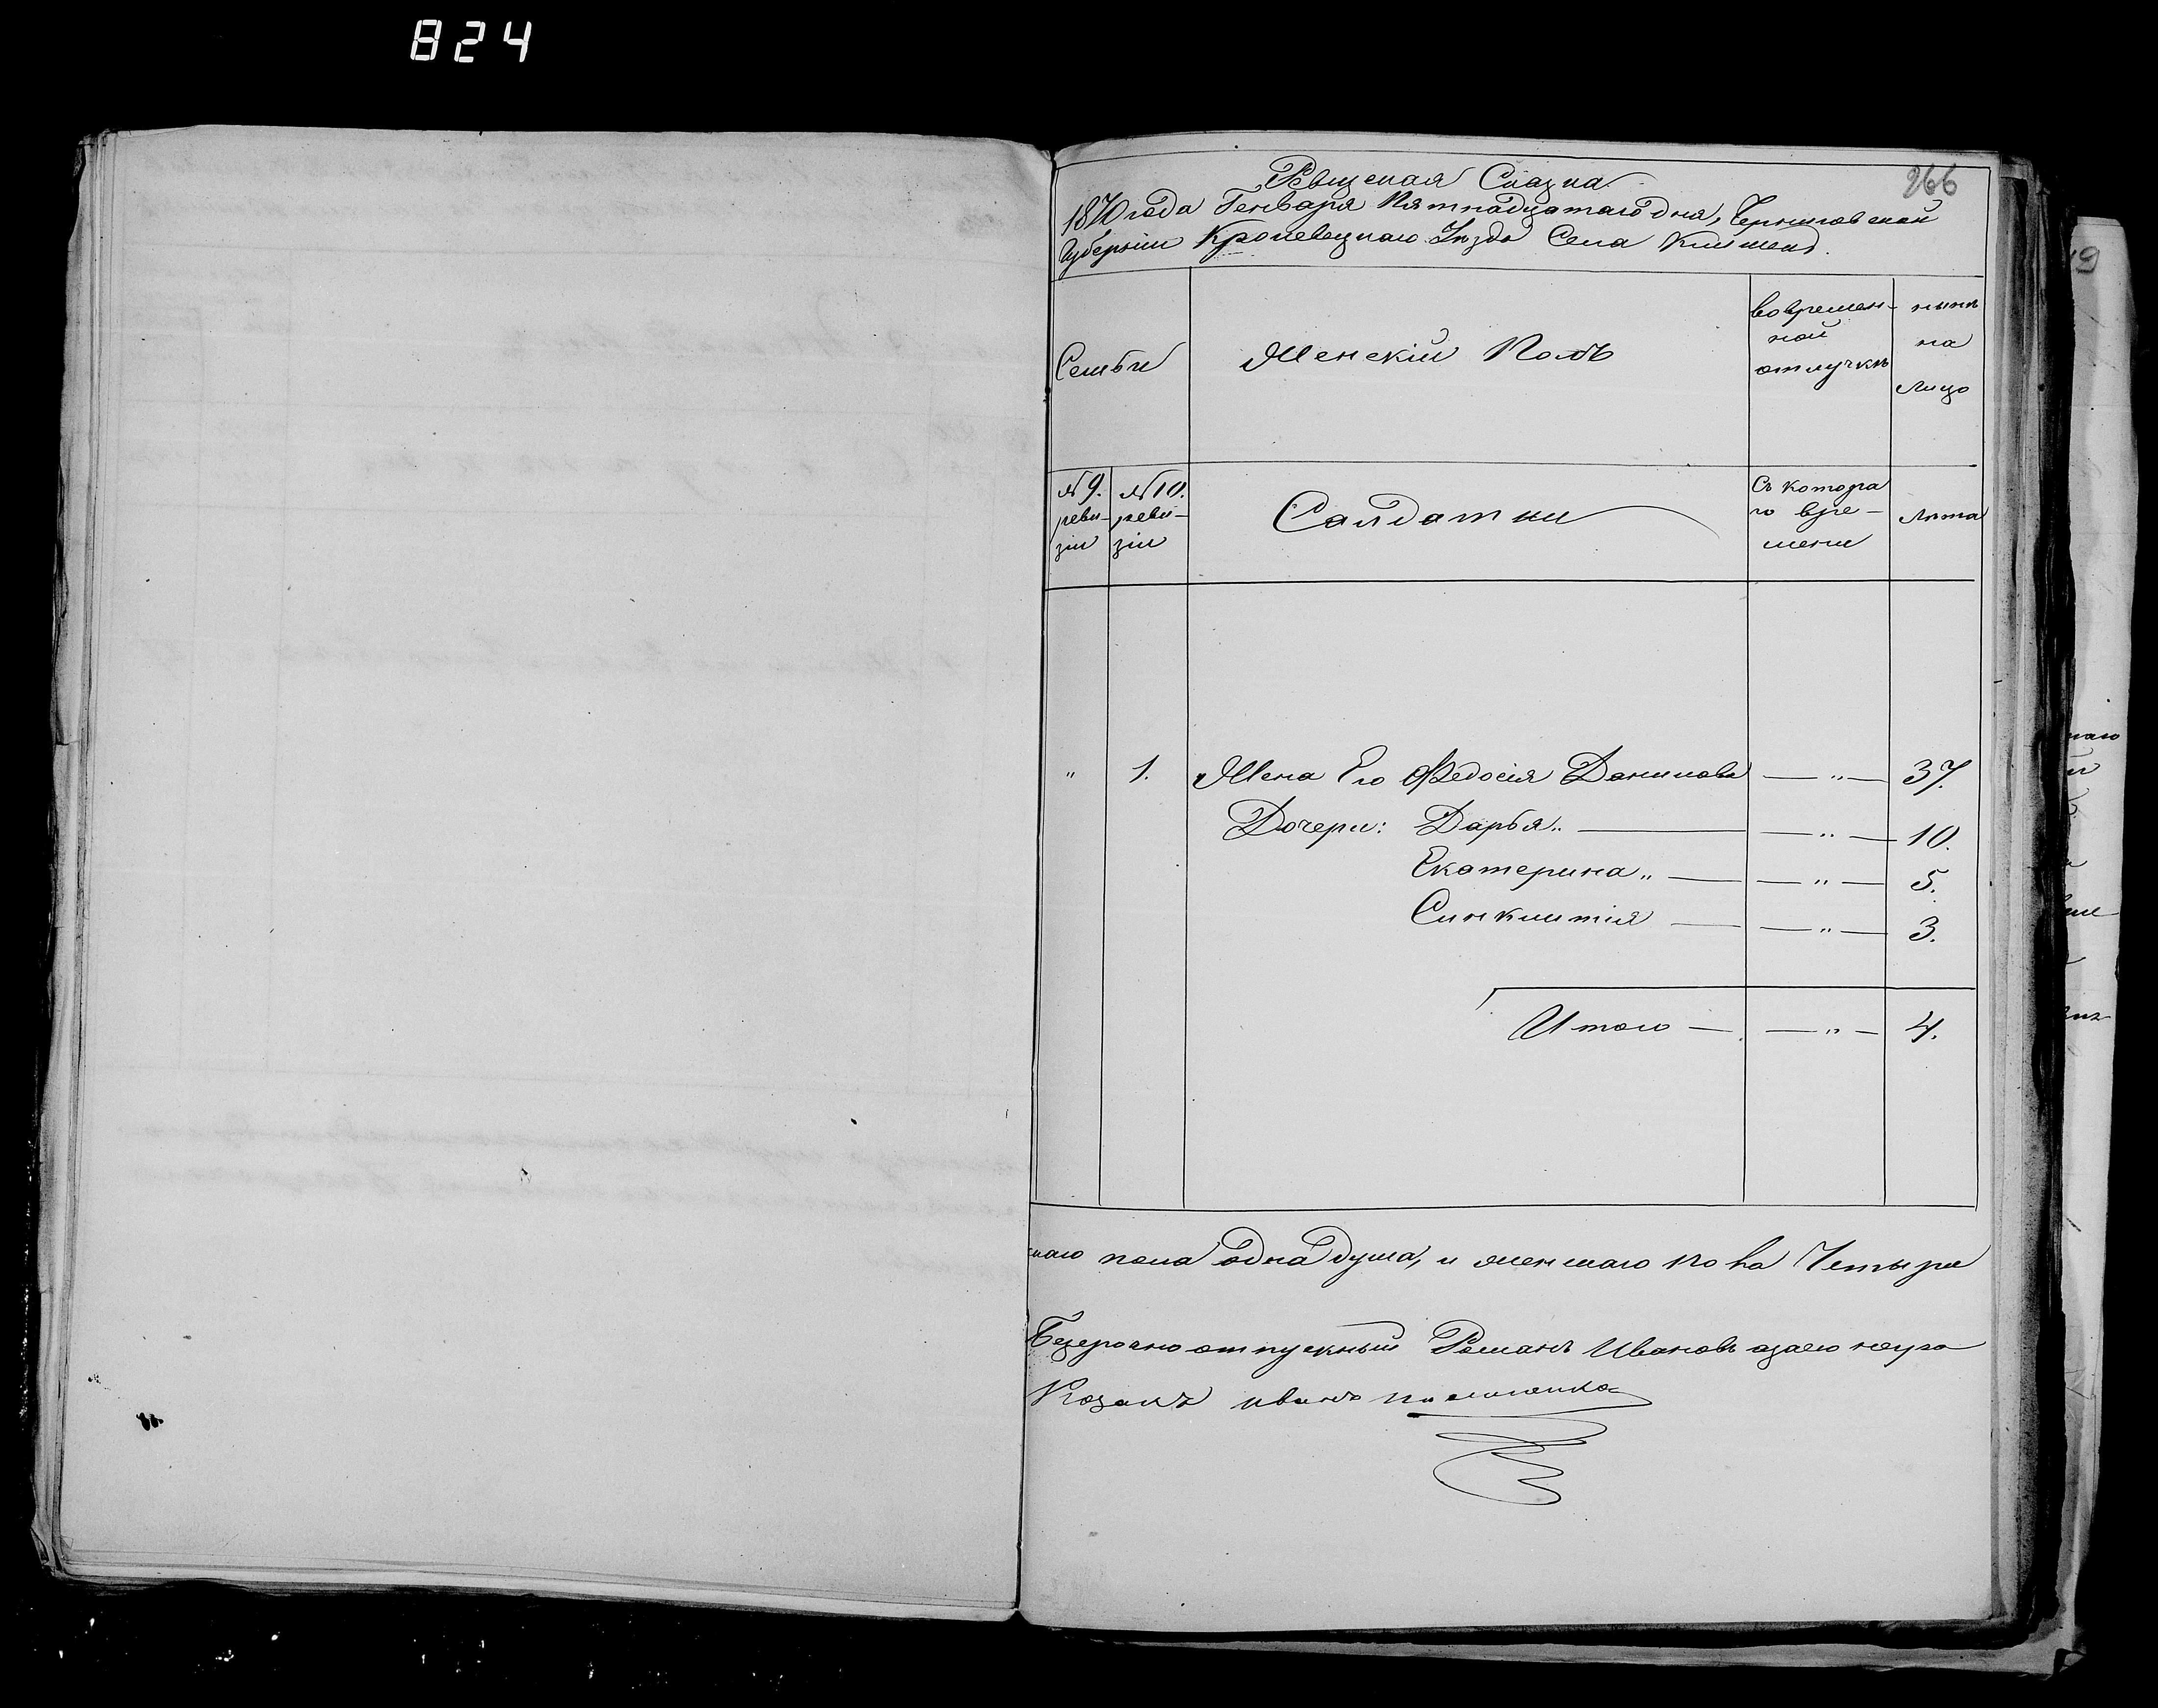 824
266
Ревизская Сказка
1870 года Генваря Пятнадцатаго дня, Черниговской
Губерніи Кролевецкаго Уѣзда Села
Семьи
Женскій Полъ
вовремен-
ной
отлучкѣ
нынѣ
на
лицо
№ 9.
реви-
зіи
№ 10.
реви-
зіи
Салдатки
Съ котора
го вре-
мени
Лѣта
" 1. Жена Его Федосія Данилова — " — 37.
Дочери: Дарья " — — " — 10.
Екатерина " — — " — 5.
Синклитія — — " — 3.
Итого — — " — 4.
пола одна душа, и женскаго пола Четыри
Безсрочно отпускный Романъ Ивановъ а за его
Козакъ иванъ
19